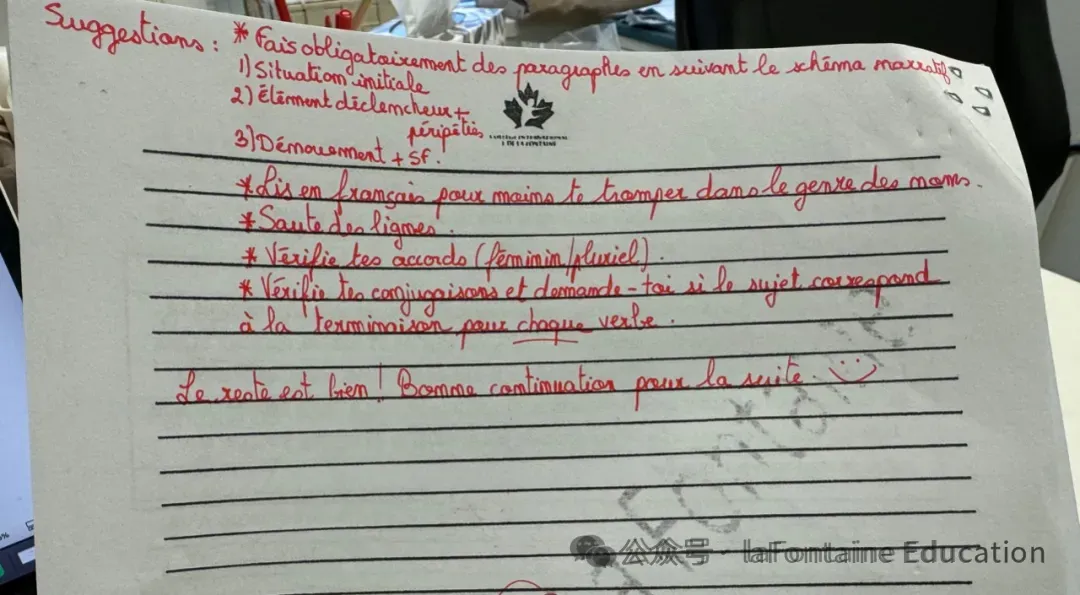 Suggestions : * Fais obligatoirement des paragraphes en suivant le schéma narratif
1) Situation initiale
2) Élément déclencheur +
péripéties
3) Dénouement + SF.
COLLÈGE INTERNATIONAL
DE LA FONTAINE
* Lis en français pour moins te tromper dans le genre des noms.
* Saute des lignes.
* Vérifie tes accords (féminin/pluriel).
* Vérifie tes conjugaisons et demande-toi si le sujet correspond
à la terminaison pour chaque verbe.
Le reste est bien ! Bonne continuation pour la suite. :)
公众号 · laFontaine Education